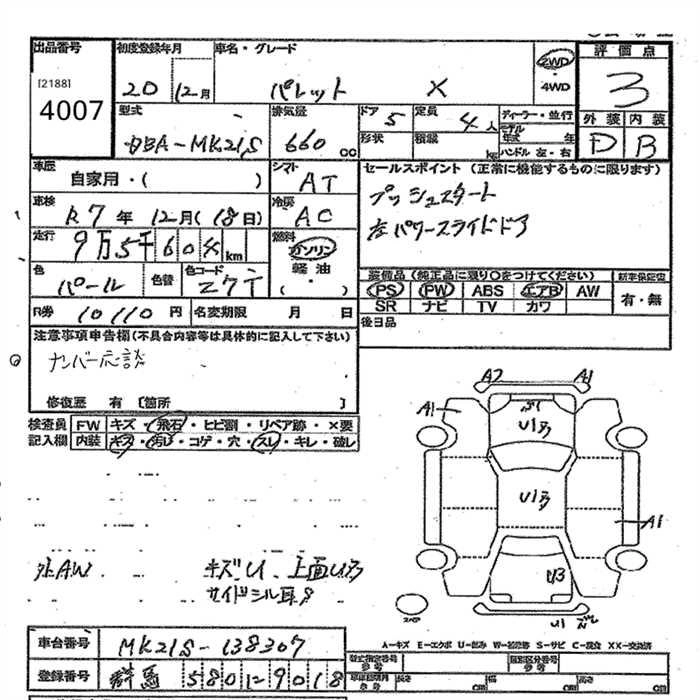 出品番号 初度登録年月 車名・グレード 2WD・4WD 評価点
[2188] 4007 20 12月 パレット X 3
型式 排気量 ドア 5 定員 4人 ディーラー・並行 外装 内装
DBA-MK21S 660 cc 形状 積載 kg モデル年式 年 ハンドル 左・右 D B
車歴 自家用・( ) シフト AT セールスポイント (正常に機能するものに限ります)
車検 R7年 12月(18日) 冷房 AC プッシュスタート
走行 9万5千604km 燃料 ガソリン 軽油 ( ・ ) 左パワースライドドア
色 パール 色替 色コード Z7T 装備品 (純正品に限り〇をつけてください) 新車保証書
PS PW ABS エアB AW 有・無
R券 10110円 名変期限 月 日 SR ナビ TV カワ
注意事項申告欄(不具合内容等は具体的に記入して下さい) 後日品
ナンバー応談
修復歴 有 [箇所 ]
検査員 FW キズ・飛石・ヒビ割・リペア跡・×要
記入欄 内装 キズ・汚れ・コゲ・穴・スレ・キレ・破レ
A2 A1
A1
U1
U1
A1
U3
U1
外AW キズU 上面
サイドシル耳
スペア
A-キズ E-エクボ U-凹み W-補修跡 S-サビ C-腐食 XX-交換済
車台番号 MK21S-138307 型式指定番号 類別区分番号
参考 参考
登録番号 群馬 580 9018 長さ cm 幅 cm 高さ cm